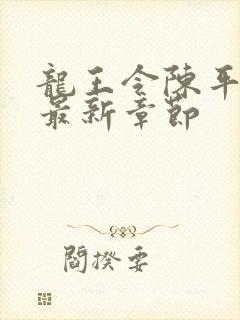 龍王令陳平
最新章節
閻揆要